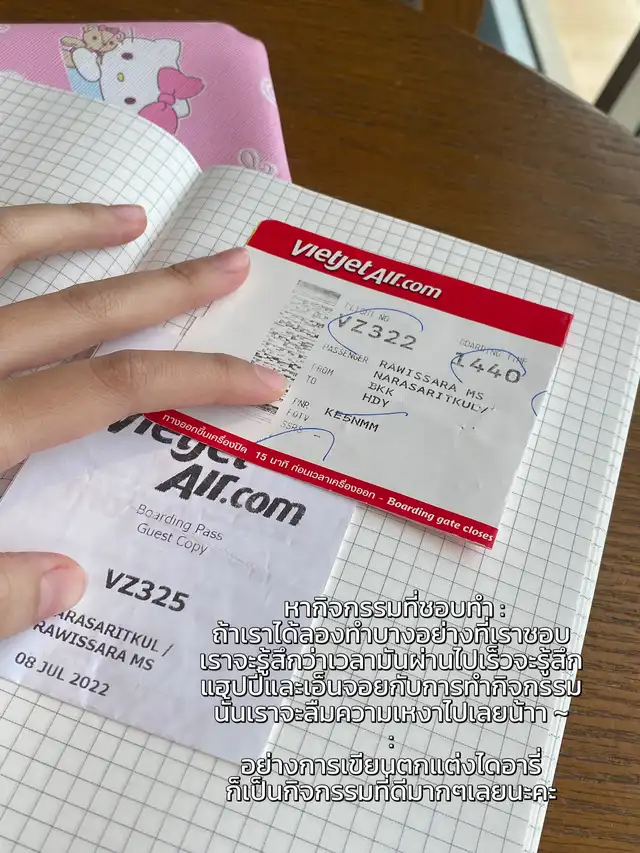 vietjetAir.com
FLIGHT NO
VZ322
BOARDING TIME
1440
PASSENGER RAWISSARA MS
NARASARITKUL/
FROM BKK
TO HDY
PNR KE5NMM
ทางออกขึ้นเครื่องปิด 15 นาที ก่อนเวลาเครื่องออก - Boarding gate closes
vietjet
Air.com
Boarding Pass
Guest Copy
VZ325
NARASARITKUL /
RAWISSARA MS
08 JUL 2022
หากิจกรรมที่ชอบทำ :
ถ้าเราได้ลองทำบางอย่างที่เราชอบ
เราจะรู้สึกว่าเวลามันผ่านไปเร็วจะรู้สึก
แฮปปี้และเอ็นจอยกับการทำกิจกรรม
นั้นเราจะลืมความเหงาไปเลยน้าา ~
:
อย่างการเขียนตกแต่งไดอารี่
ก็เป็นกิจกรรมที่ดีมากๆเลยนะคะ